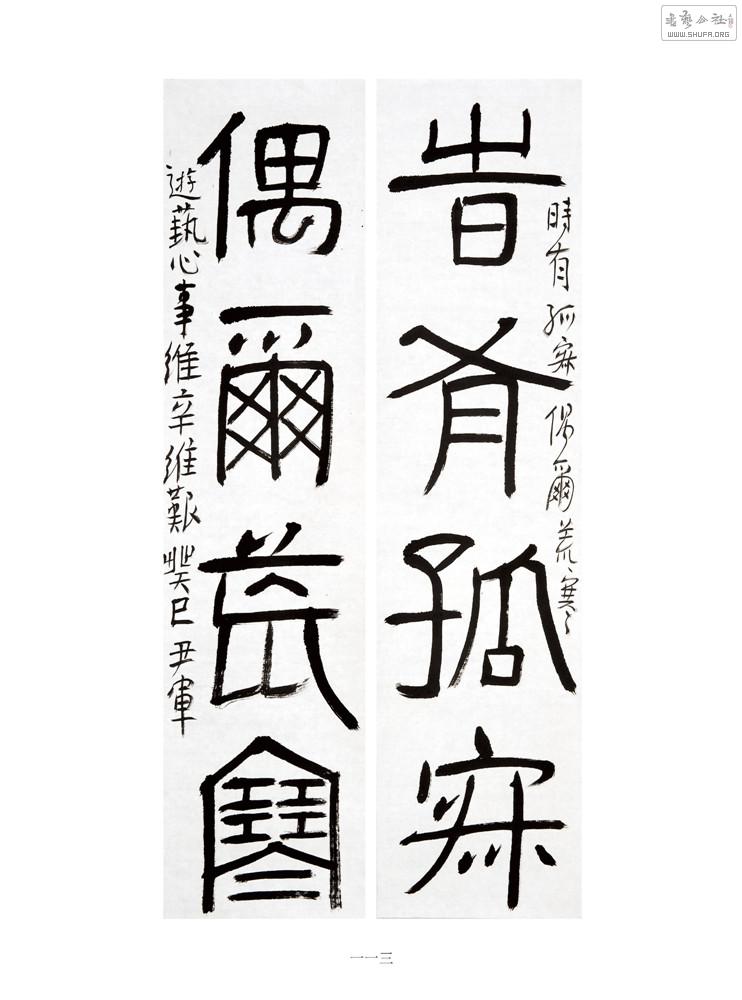 書藝公社
WWW.SHUFA.ORG
時有孤寂偶爾荒寒
旹有孤寂
偶爾荒寒
遊藝心事維辛維艱癸巳尹軍
一一三